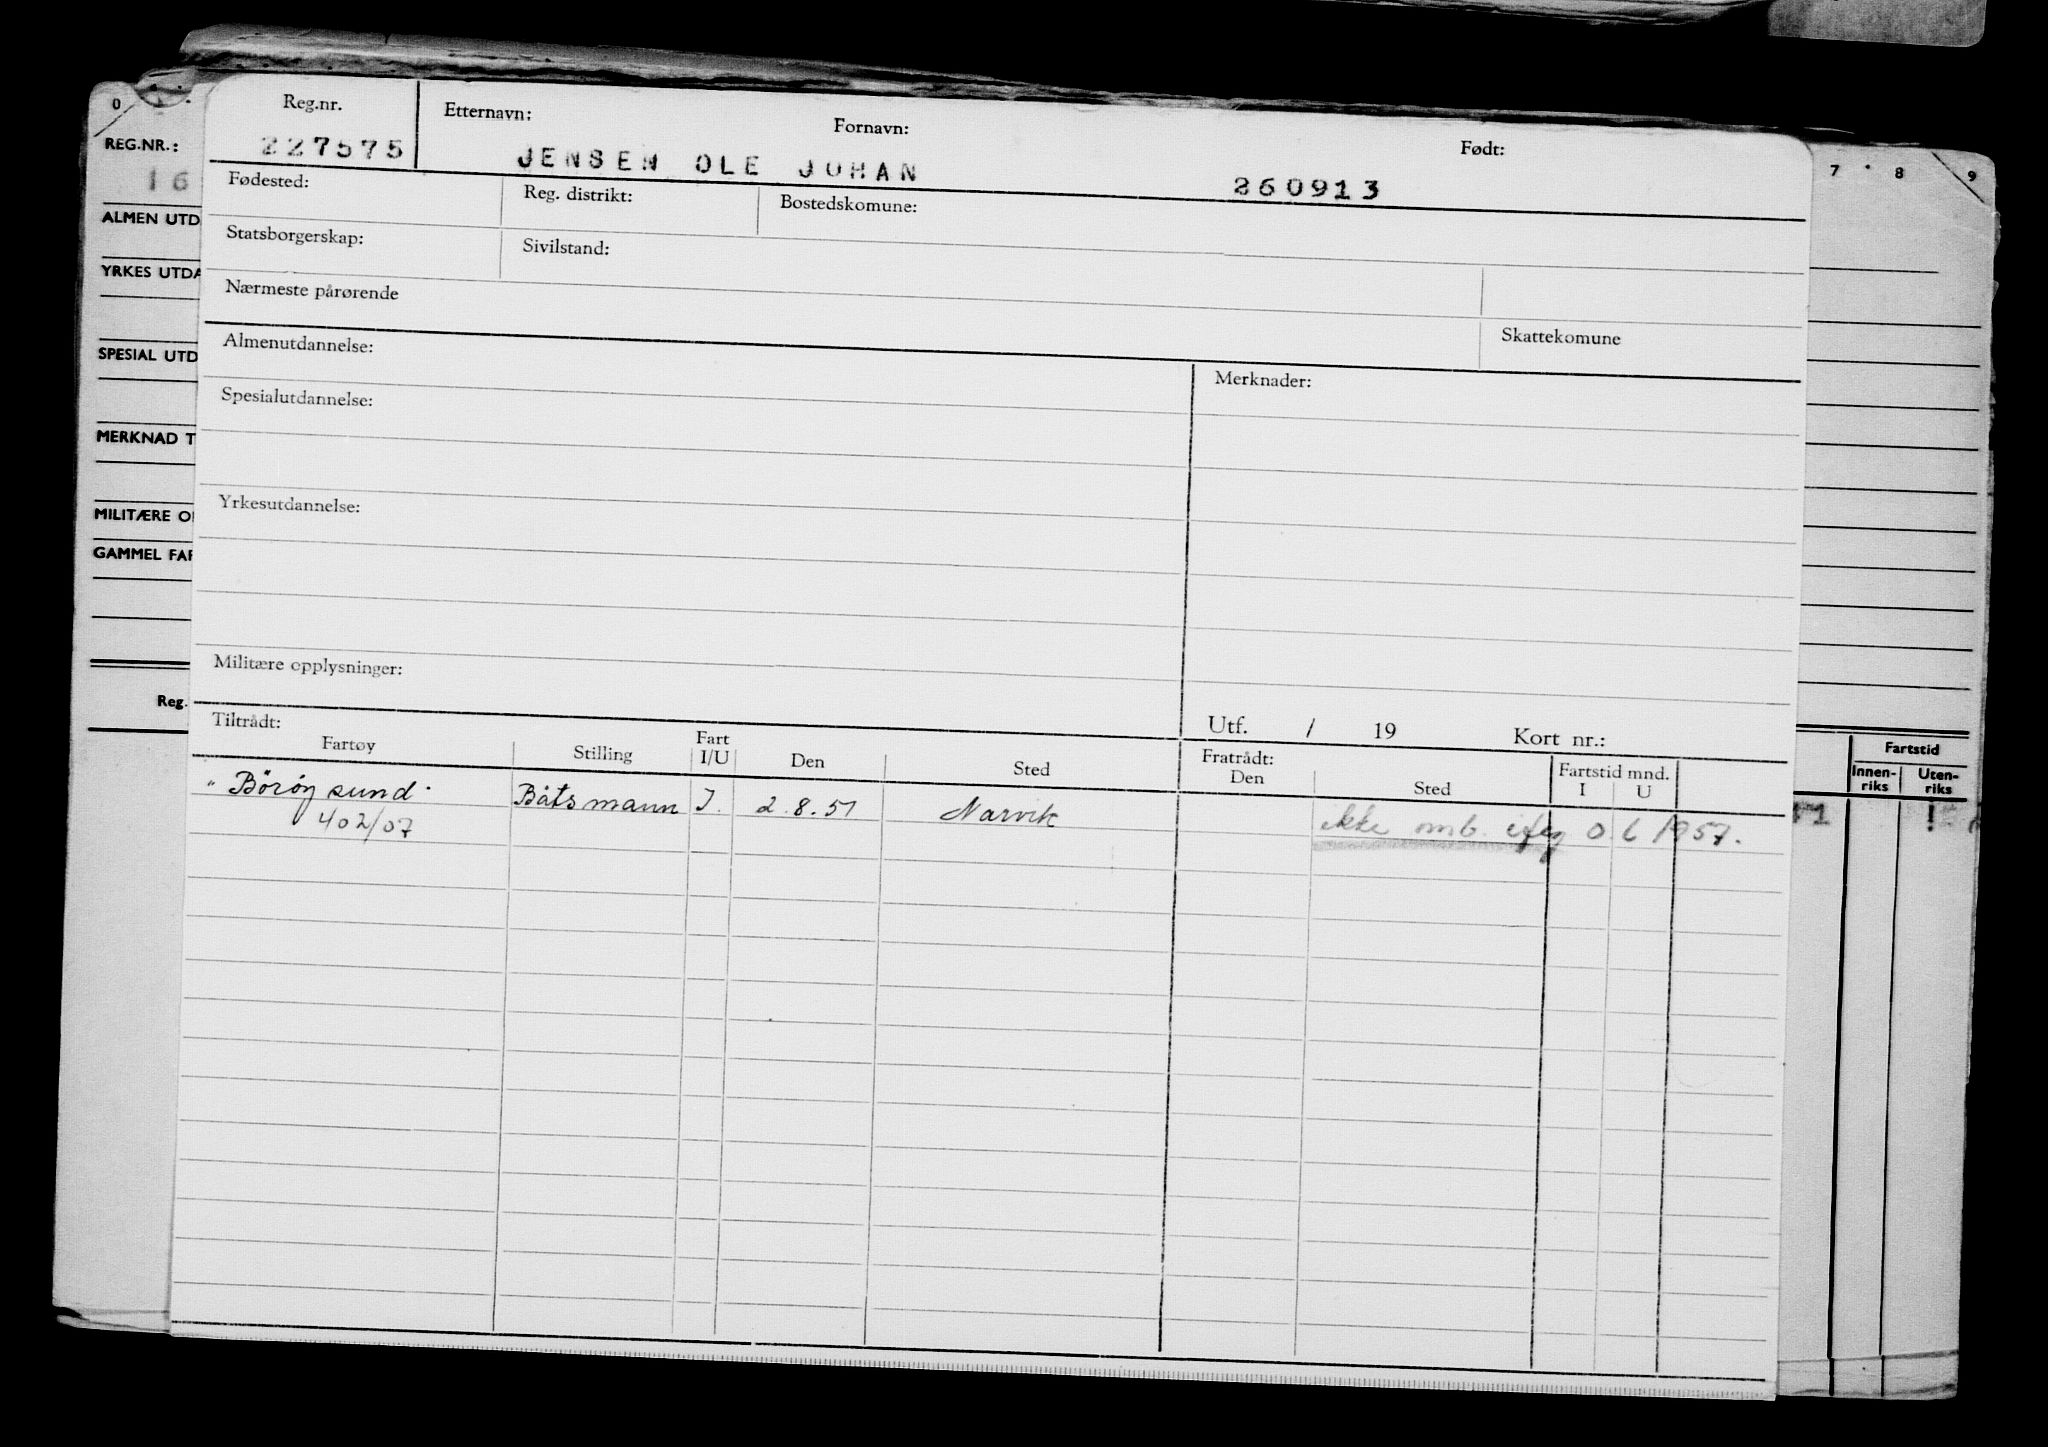 0 7 8 9
Reg.nr. Etternavn: Fornavn: Født:
REG.NR.: 227575 JENSEN OLE JOHAN 260913
16
Fødested: Reg. distrikt: Bostedskomune:
ALMEN UTD
Statsborgerskap: Sivilstand:
YRKES UTDA
Nærmeste pårørende
Almenutdannelse: Skattekomune
SPESIAL UTD
Merknader:
Spesialutdannelse:
MERKNAD T
Yrkesutdannelse:
MILITÆRE O
GAMMEL FAR
Militære opplysninger:
Reg.
Tiltrådt: Utf. / 19 Kort nr.:
Fartøy Stilling Fart I/U Den Sted Fratrådt: Den Sted Fartstid mnd. I U
Fartstid
Innen-riks Uten-riks
"Börøysund" Båtsmann I. 2.8.57 Narvik ikke omb. 1957.
402/07